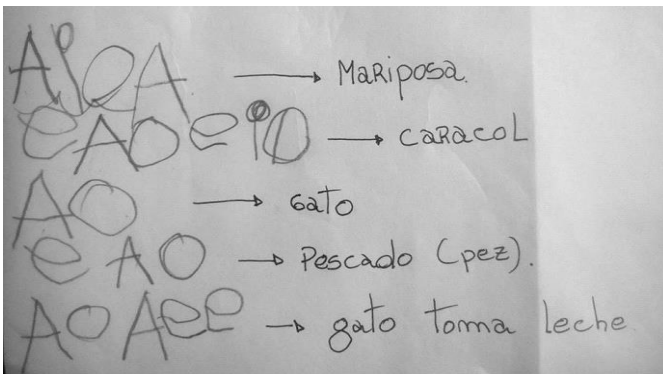 AieA → MaRiposa.
eAoeio → caRacoL
Ao → Gato
eAo → Pescado (pez).
AoAee → gato toma leche